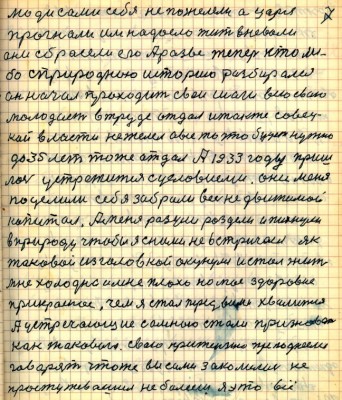 люди сами себя не пожелели а царя 7
прогнали им надоело жит вневоли
они сбросели его Аразве тепер кто ли-
бо сприродною историю разбирался
он начил проходит свои шаги всю сваю
молодост втруде отдал итакже совец-
кай власти нежелел
до 35 лет тоже атдал А 1933 году приш
лос устретится сусловием. они меня
поделили себя забрали все недвижимой
капитал. Аменя разули роздели ипихнули
вприроду чтобы я сними не встричался як
таковой изголовкой окунули истал жит
мне холодно имне плохо но мое здоровие
прикрасное, чем я стал пред вами хвалится
Аустречающие самною стали признават
как таковыго. сваю притензию преподнесли
гаварят что же вы сими закомили не
простуживаися не болеиш яэто всё